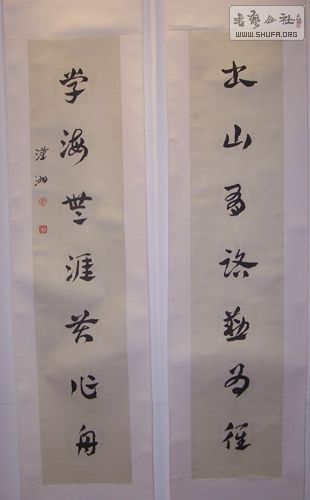 書藝公社
WWW.SHUFA.ORG
书山有路勤为径
学海無涯苦作舟